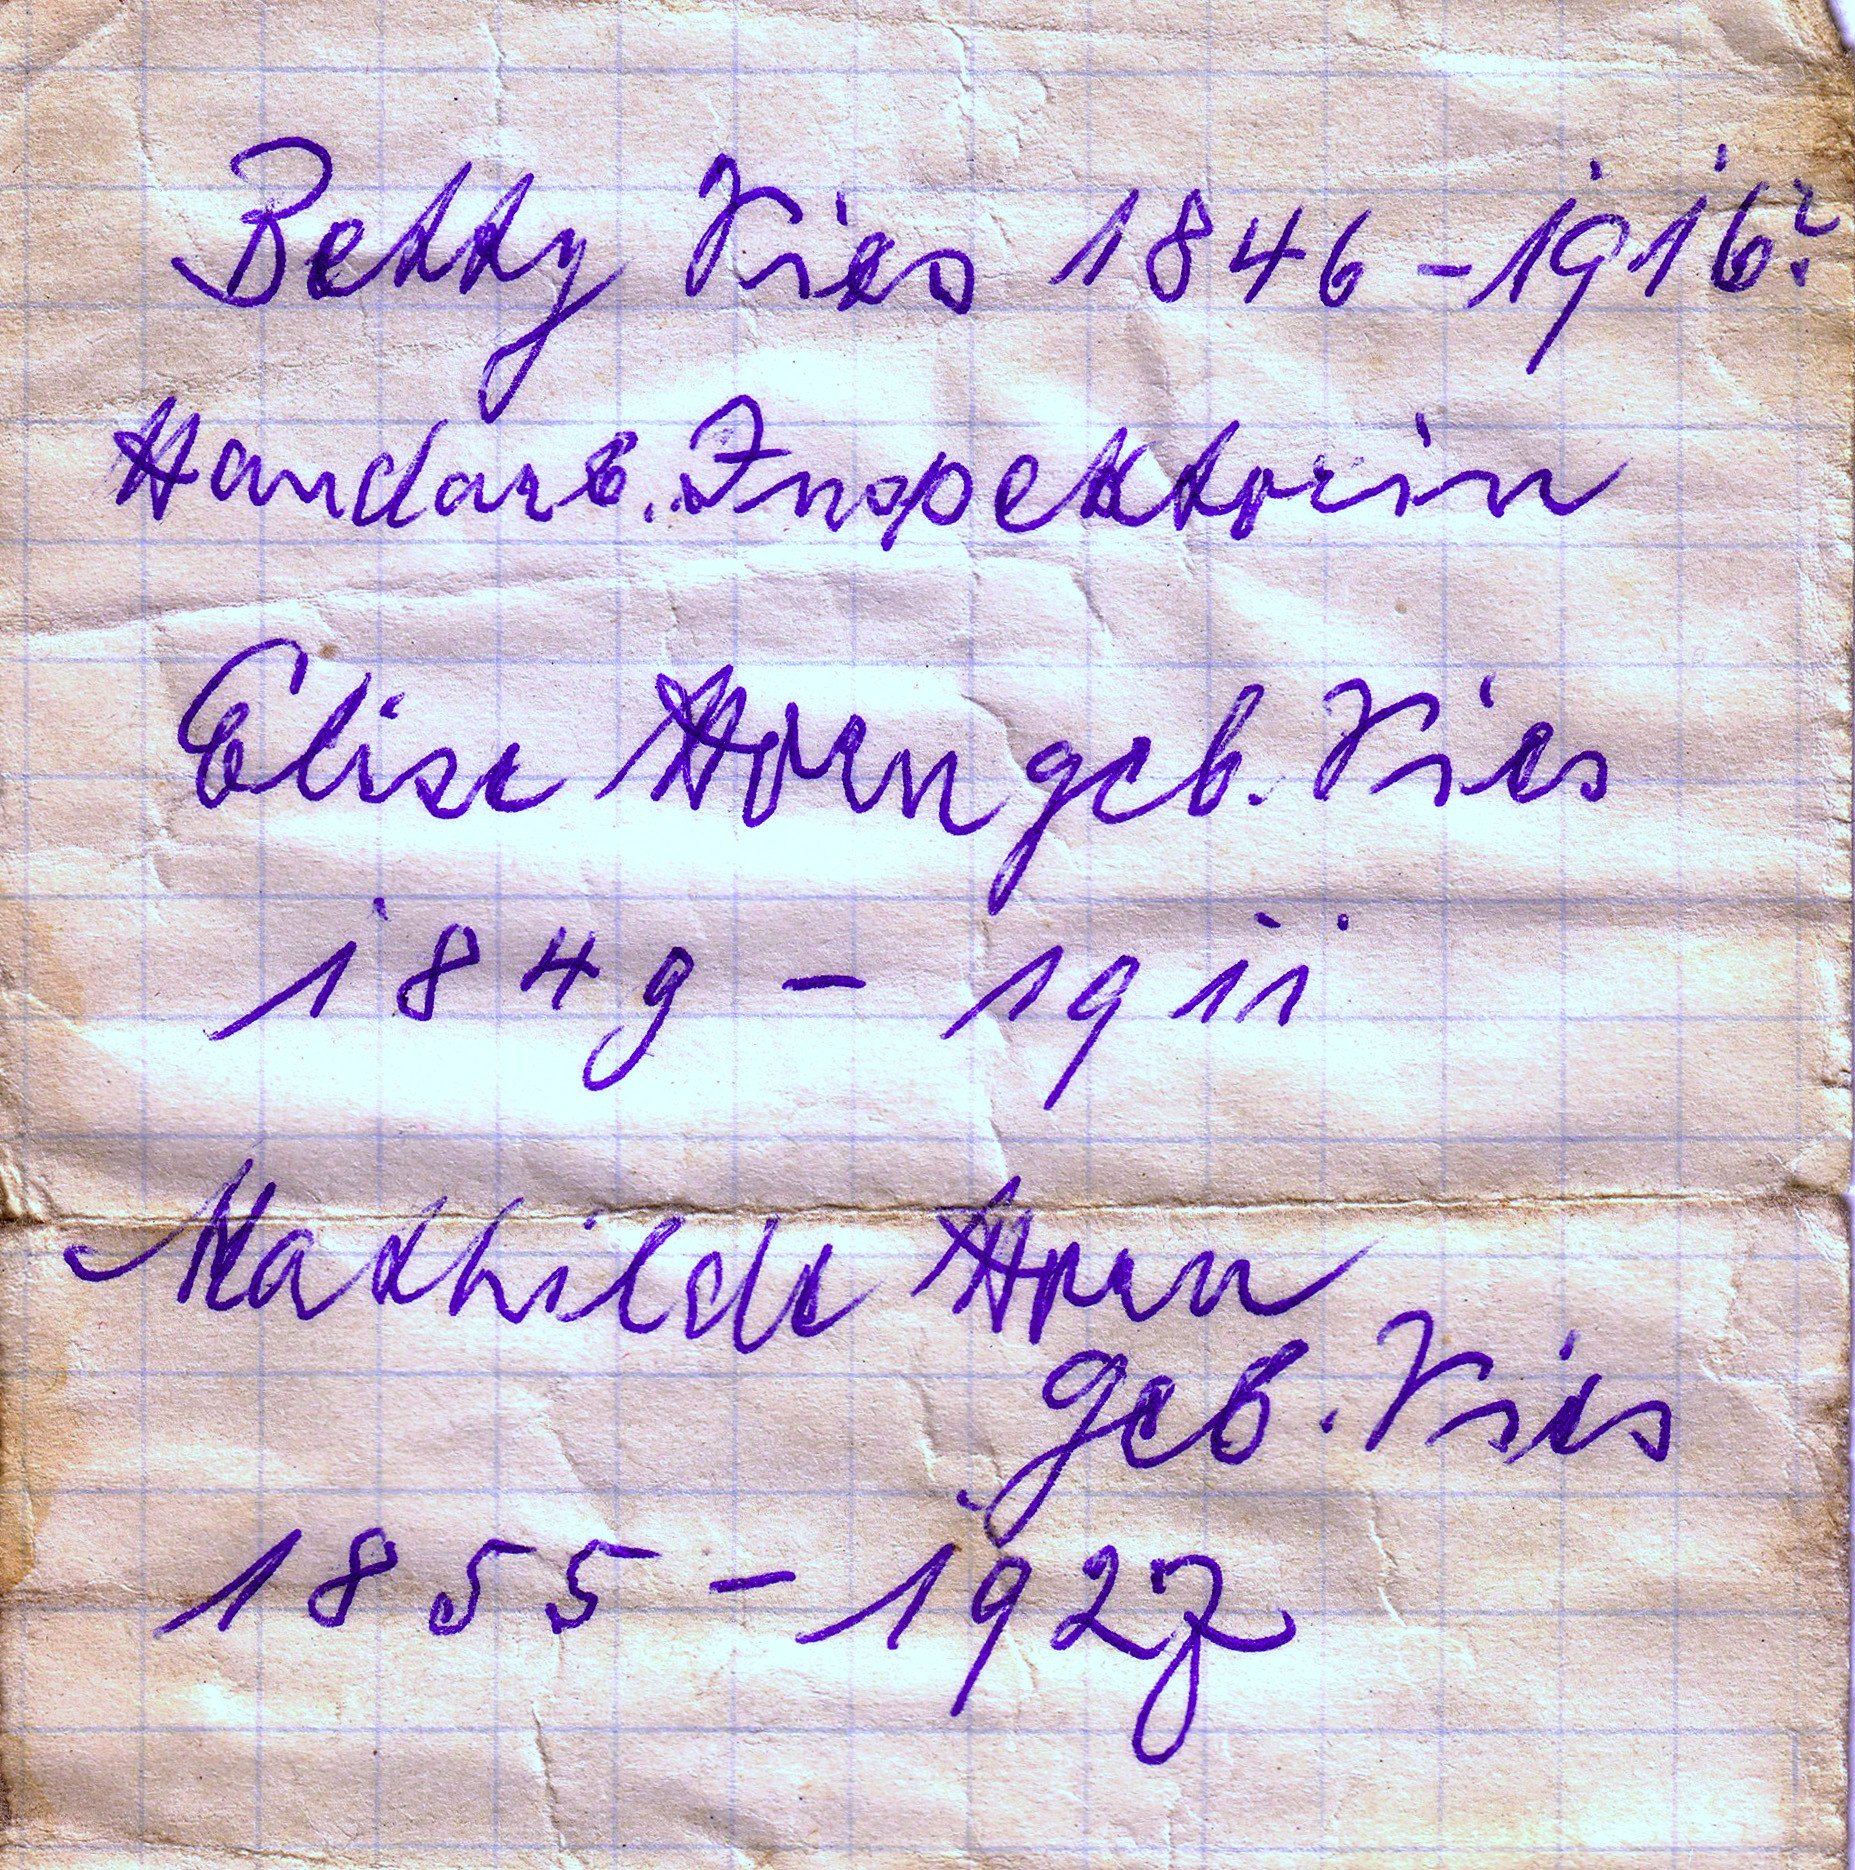 Betty Vies 1846 - 1916?
Handarb. Inspektorin
Elise Horn geb. Vies
1849 - 1911
Mathilde Horn
geb. Vies
1855 - 1927